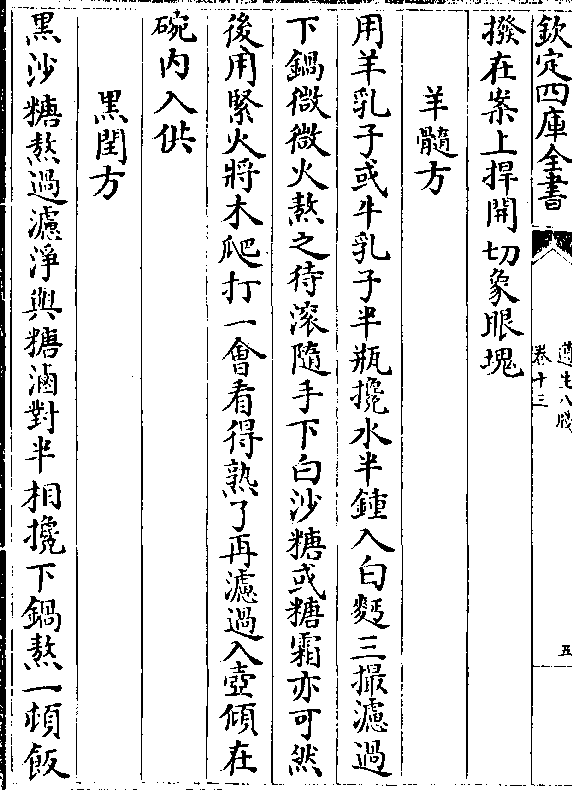 欽定四庫全書
遵生八牋
卷十三
五
撥在案上捍開切象眼塊
羊髓方
用羊乳子或牛乳子半瓶攙水半鍾入白麪三撮濾過
下鍋微微火熬之待滚隨手下白沙糖或糖霜亦可然
後用緊火將木爬打一會看得熟了再濾過入壺傾在
碗内入供
黑閏方
黑沙糖熬過濾淨與糖滷對半相攙下鍋熬一頓飯